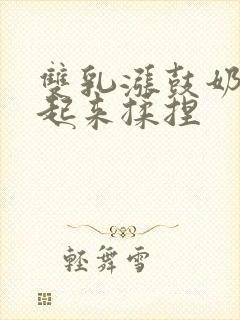 雙乳漲鼓奶
起来揉捏
輕舞雪